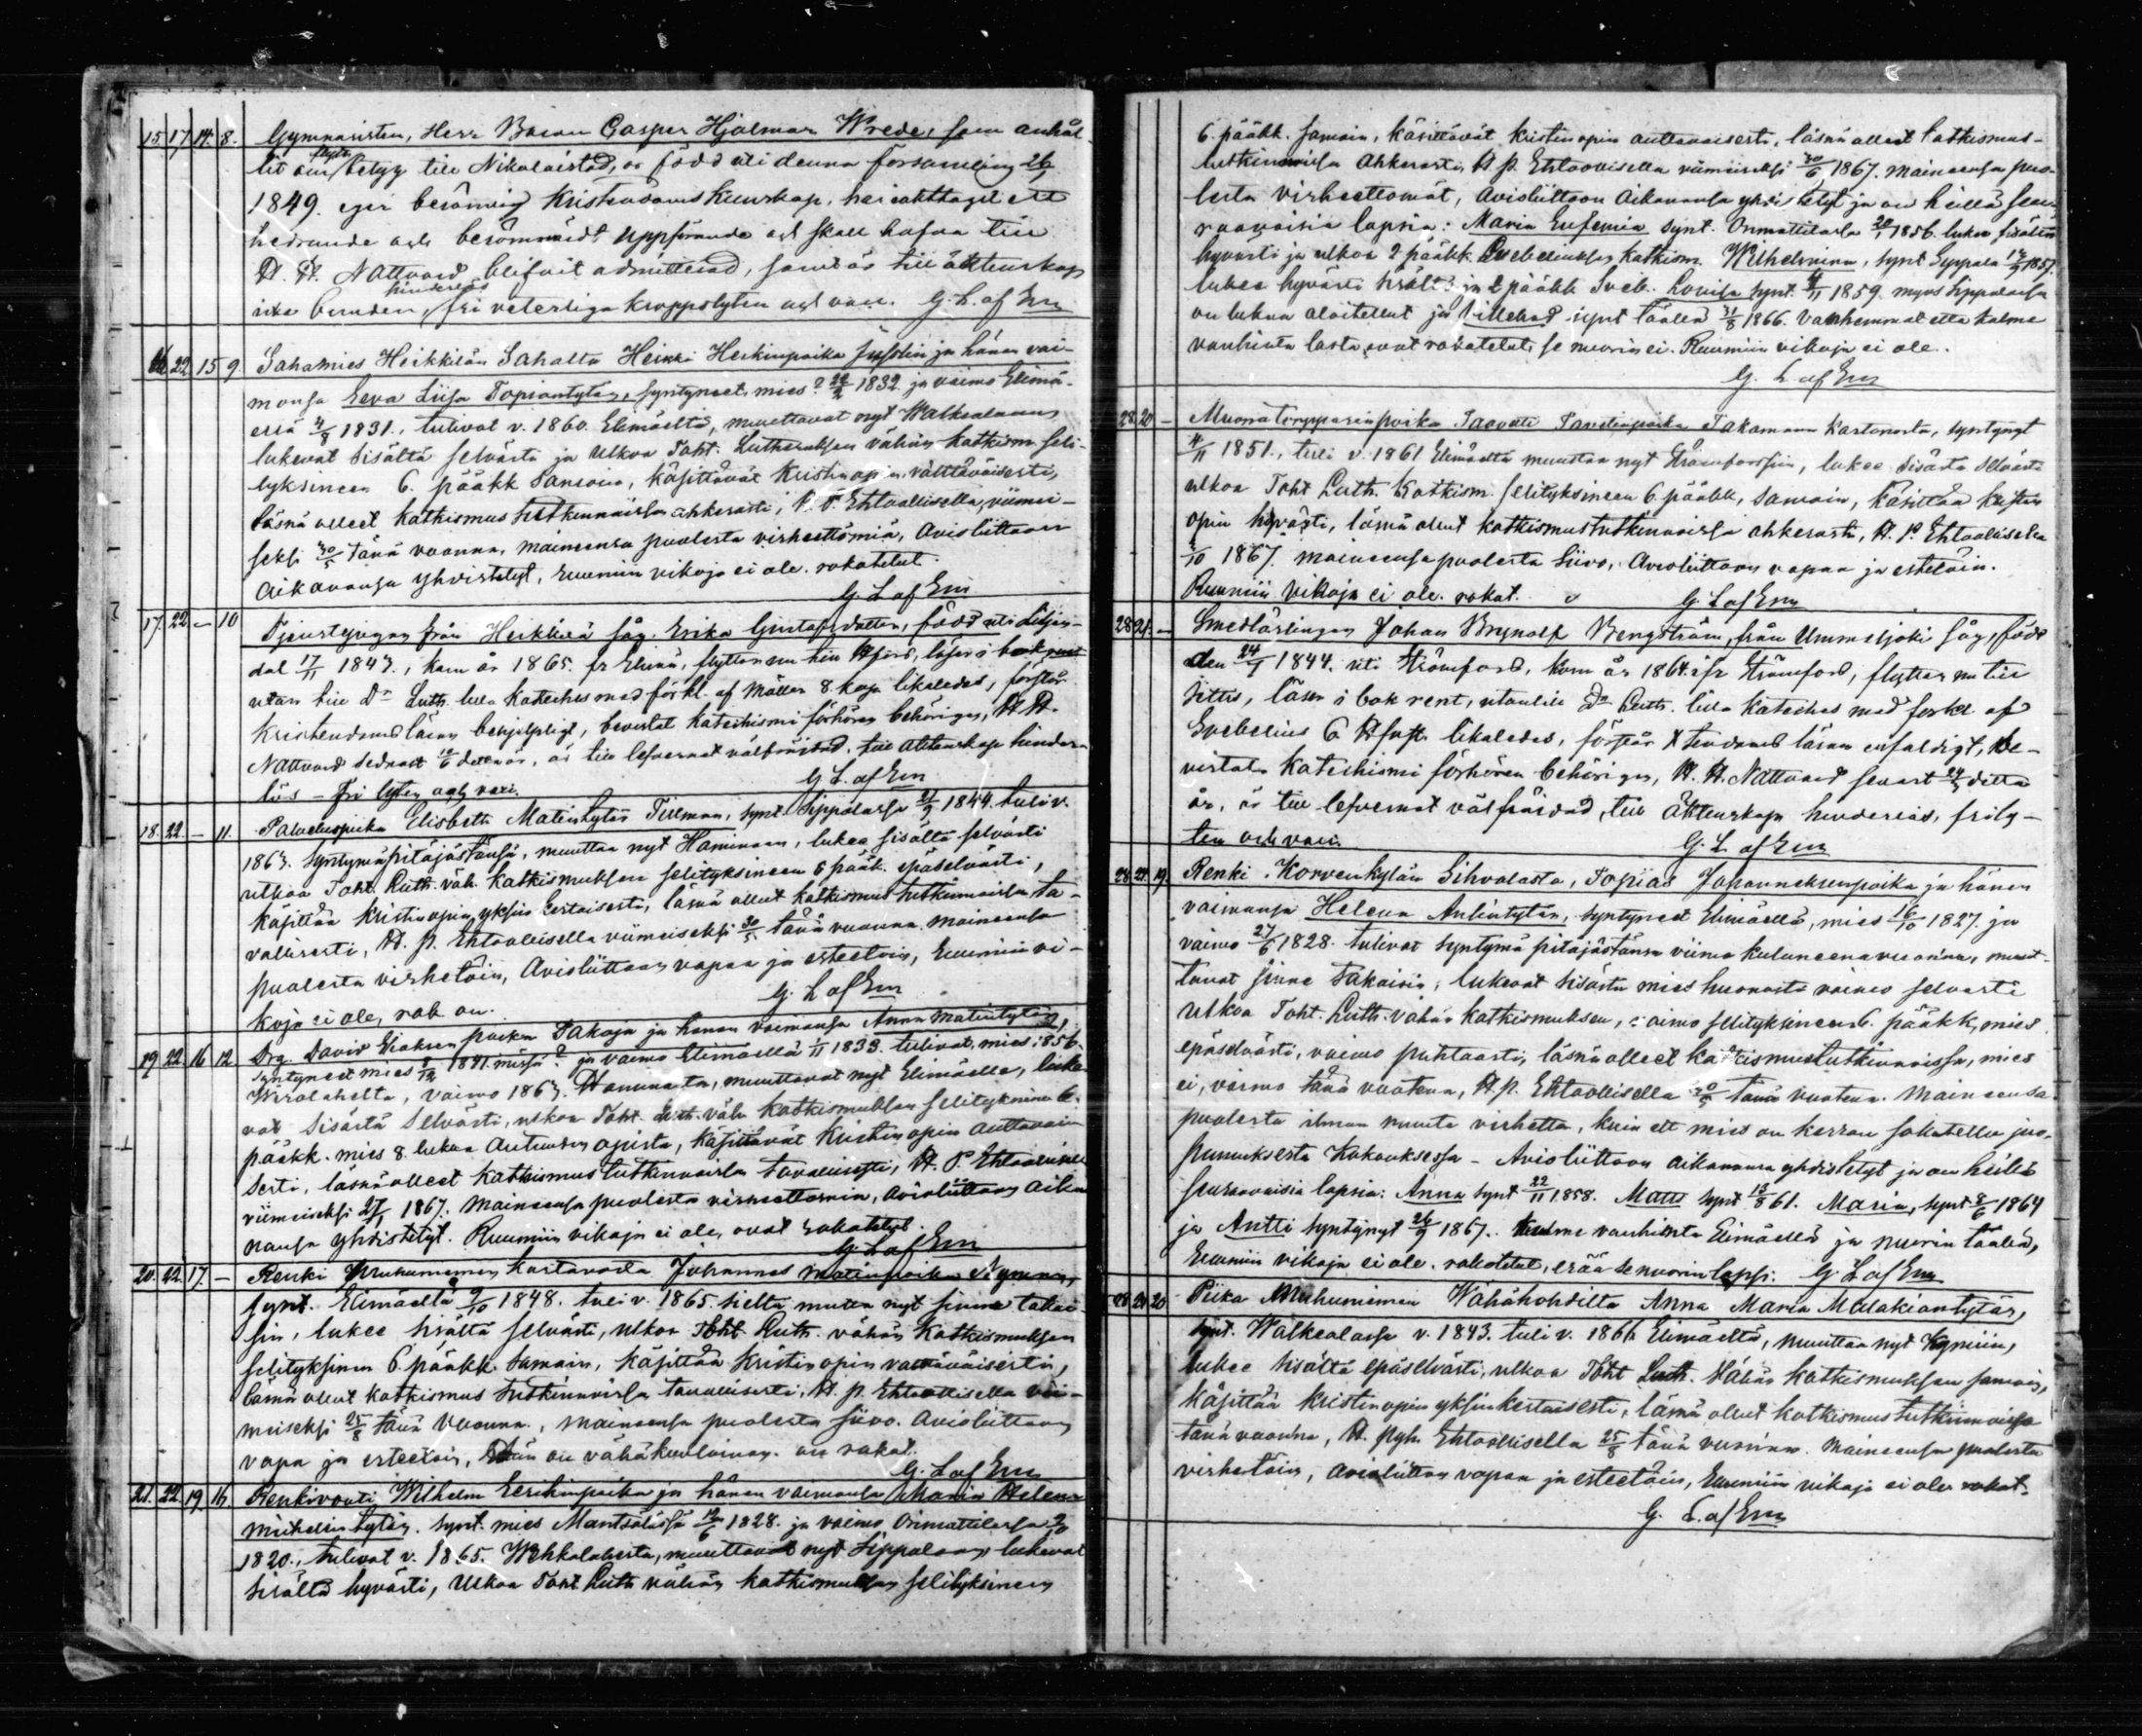 15. 17. 14. 8. Gymnasisten, Herr Baron Casper Hjalmar Wrede, som anhål-
lit om flytt betyg till Nikolaistad, är född uti denna församling 26/1
1849. eger beröműig Kristendoms kunskap, har iakttagit ett
hedrande och berömvärdt uppförande och skall hafva till
H. H. Nattvard blifvit admitterad, samt är till äktenskap
icke bunden, hinderlös fri veterliga kroppslyten och vank. G. L. af Em
16. 22. 15 9. Sahamies Heikkilän Sahalta Heikki Heikinpoika ja hänen vai-
monsa Eeva Liisa Topiantytär, syntyneet mies? 1832 ja vaimo Elimä-
essä 4/8 1831., tulivat v. 1860. Elimäeltä, muuttavat nyt Walkealaan,
lukevat sisältä selvästi ja ulkoa Toht. Lutheruksen vähän katkism. seli-
tyksineen 6. pääkk samoin, käsittävät Kristin opin välttäväisesti,
läsnä olleet katkismus tutkinnoissa ahkerasti, P. P. Ehtoollisella viimei-
seksi 30/5 tänä vuonna, maineensa puolesta virheettömiä, Avioliittoon
Aikananansa yhdistetyt, ruumiin vikoja ei ole. rokotetut.
G. L. af Em
17. 22. – 10 Tjenstepigan från Heikkilä såg. Erika Gustafsdotter, född uti Liljen-
dal 17/11 1843., kom år 1865. fr Elimä, flyttar nu till läser i bok rent
utan till Dr Luth. lilla Kateches med förkl. af Möller 8. kap likaledes, förstår
Kristendoms läran behjelpligt, bevistat katechismi förhören behörigen, H. H.
Nattvard sednast detta år, är till lefvernet välfrejdad, till äktenskap hinder-
lös – Fri lyten och vank.
G. L. af Em
18. 22. – 11. Palveluspiika Elisbeth Matintytär Tillman, synt. Sippolassa 21/9 1844. tuli v.
1863. syntymäpitäjästänsä, muuttaa nyt Haminaan, lukee sisältä selvästi
ulkoa Toht. Luth. väh. Katkismuksen selityksineen 6 pääk. epäselvästi,
käsittää Kristin opin yksin kertaisesti, läsnä ollut katkismus tutkinnoissa ta-
vallisesti, H. p. Ehtoollisella viimeiseksi 30/5 tänä vuonna. Maineensa
puolesta virhetöin, Avioliittoon vapaa ja esteetöin, Ruumiin vi-
koja ei ole, rok. on.
G. L af Em
19 22. 16 12. Drg. David poika Takoja ja hänen vaimonsa Anna Matintytär,
syntyneet mies 1841. missä? ja vaimo Elimäellä 1/11 1833. tulivat, mies 1856
Wirolahelta, vaimo 1863. Haminasta, muuttavat nyt Elimäelle, luke-
vat sisästä selvästi, ulkoa Toht. Luth. väh. katkismuksen selityksineen 6.
pääkk. mies 8. lukua Autuuden opista, käsittävät Kristin opin auttavai-
sesti, läsnä olleet katkismus tutkinnoissa tavallisesti, H. P. Ehtoollisella
viimeiseksi 27/1 1867. Maineensa puolesta virheettömiä, Avioliittoon Aika-
nansa yhdistetyt. Ruumiin vikoja ei ole, ovat rokotetut.
G. L af Em
20. 22. 17. – Renki Muhniemen kartanosta Johannes Matinpoika Nyman,
synt. Elimäellä 9/10 1848. tuli v. 1865. sieltä, muuttaa nyt sinne takai-
sin, lukee sisältä selvästi, ulkoa Toht. Luth. vähän Katkismuksen
selityksineen 6. pääkk. samoin, käsittää Kristin opin välttäväisesti,
läsnä ollut katkismus tutkinnoissa tavallisesti, H. p. Ehtoollisella vii-
meiseksi 25/8 tänä vuonna, maineensa puolesta siivo. Avioliittoon
vapa ja esteetöin, Hän on vähäkuuloinen. on rokot.
G. L af Em
21. 22. 19. 16. Renkivouti, Wilhelm Eerikinpoika ja hänen vaimonsa Maria Helena
Michelintytär. synt. mies Mäntsälässä 12/6 1828. ja vaimo Orimattilassa
1820., tulivat v. 1865. Wehkalahesta, muuttavat nyt Sippolaan, lukevat
sisältä hyvästi, ulkoa Toht Luth vähän katkismuksen selityksineen
6. pääkk. samoin, käsittävät kristin opin auttavaisesti, läsnä olleet katkismus-
tutkinnoissa ahkerasti, H. p. Ehtoollisella viimeiseksi 30/6 1867. maineensa puo-
lesta virheettömät, Avioliittoon Aikanansa yhdistetyt ja on heillä seu-
raavaisia lapsia: Maria Eufemia synt. Orimattilassa 20/1 1856. lukee sisältä
hyvästi ja ulkoa 2 pääkk. Svebeliuksen katkism. Wilhelmina, synt Sippola 1857.
lukee hyvästi sisältä ja 2 pääkk Sveb. Lovisa synt. 4/11 1859. myös Sippolassa
on lukua aloitellut ja Willehad synt täällä 31/8 1866. Vanhemmat että kolme
vanhinta lasta ovat rokotetut, se nuorin ei. Ruumiin vikoja ei ole.
G. L. af Em
28. 20 – Muonatorpparinpoika Taavetti Taavetinpoika Takamaan Kartanosta, syntynyt
4/11 1851., tuli v. 1861 Elimäeltä muuttaa nyt Strömforssiin, lukee sisästä selvästi
ulkoa Toht Luth. Katkism. selityksineen 6. pääkk, samoin, käsittää kristin
opin hyvästi, läsnä ollut katkismustutkinnoissa ahkerasti, H. P. Ehtoollisella
1867. maineensa puolesta siivo, Avioliittoon vapaa ja estetöin.
Ruumiin vikoja ei ole. rokot.
G. L af Em
28 21. – Smedlärlingen Johan Brynolf Bengström, från Ummeljoki såg, född
den 24/1 1844. uti Strömfors, kom år 1864. ifr Strömfors, flyttar nu till
Jittis, läser i bok rent, utantill Dr Luth. lilla Kateches med förkl. af
Svebelius 6 Hfst. likaledes, förstår Xtendoms läran enfaldigt, be-
vistat Katechismi förhören behörigen, H. H. Nattvard senast 24/3 detta
år, är till lefvernet välfräjdad, till äktenskap hinderlös, fri ly-
ten och vank.
G. L. af Em
28 22. 19. Renki Korvenkylän Sihvolasta, Topias Johanneksenpoika ja hänen
vaimonsa Helena Antintytär, syntyneet Elimäellä, mies 16/10 1827. ja
vaimo 27/6 1828. tulivat syntymä pitäjästänsä viime kuluneena vuonna, muut-
tavat sinne takaisin, lukevat sisästä mies huonosti vaimo selvästi
ulkoa Toht. Luth. vähän katkismuksen, vaimo selityksineen 6. pääkk, mies
epäselvästi, vaimo puhtaasti, läsnä olleet katkismustutkinnoissa, mies
ei, vaimo tänä vuotena, H. p. Ehtoollisella tänä vuotena. Maineensa
puolesta ilman muuta virhettä, kuin ett mies on kerran sakotettu juo-
pumuksesta Kokouksessa – Avioliittoon aikanansa yhdistetyt ja on heillä
seuraavaisia lapsia: Anna synt 22/11 1858. Matti synt 13/8 61. Maria, synt 8/6 1864
ja Antti syntynyt 26/9 1867. kolme vanhinta Elimäellä ja nuorin täällä,
Ruumiin vikoja ei ole. rokotetut, erää se nuorin lapsi. G. L af Em
28 20 20 Piika Muhniemen Wähäkohdilta Anna Maria Malakiantytär,
synt. Walkealassa v. 1843. tuli v. 1866 Elimäeltä, muuttaa nyt Kymiin,
lukee sisältä epäselvästi, ulkoa Toht Luth. Vähän katkismuksen samoin,
Käsittää Kristin opin yksinkertaisesti, läsnä ollut katkismus tutkinnoissa
tänä vuonna, H. pyh. Ehtoollisella 25/8 tänä vuonna. Maineensa puolesta
virhetöin, avioliittoon vapaa ja esteetöin, Ruumiin vikoja ei ole. rokot.
G. L. af Em